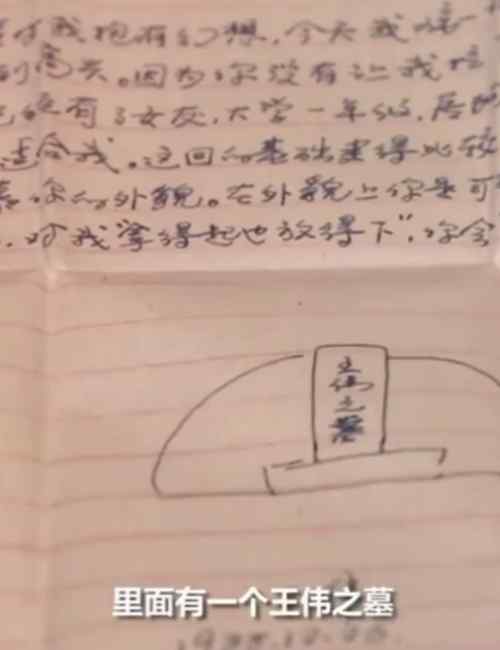 对我抱有幻想,今天我
到高兴。因为你没有让我
有了女友,大学一年级,
适合我。这回的基础建得比较
你的外貌。在外貌上你是可
对我"拿得起也放得下",你会
王伟之墓
里面有一个王伟之墓